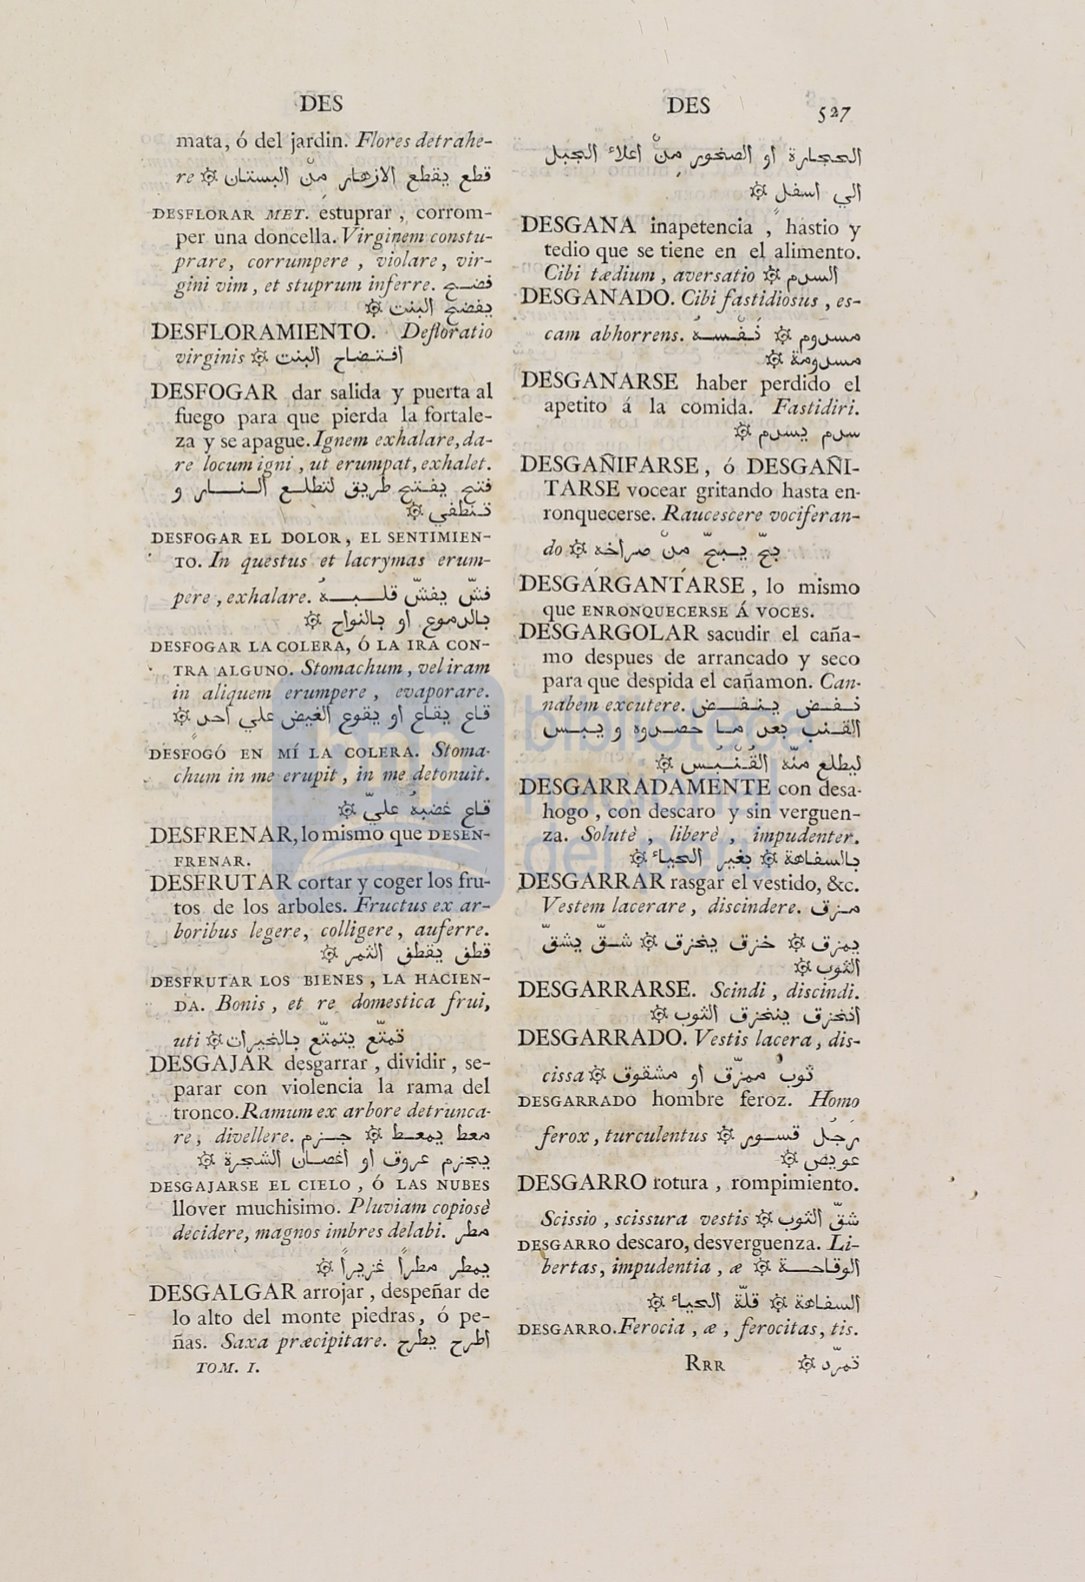 DES
mata, ó del jardin. Flores detrahe-
re ۞ قطع يقطع الازهار من البستان
DESFLORAR MET. estuprar , corrom-
per una doncella. Virginem constu-
prare, corrumpere , violare, vir-
gini vim , et stuprum inferre. فضــح
يفضح البنت ۞
DESFLORAMIENTO. Defloratio
virginis ۞ افتـضاح البنت
DESFOGAR dar salida y puerta al
fuego para que pierda la fortale-
za y se apague. Ignem exhalare, da-
re locum igni , ut erumpat, exhalet.
فتح يفـتح طريق لتطلـع الـنـار و
تـنطفي ۞
DESFOGAR EL DOLOR, EL SENTIMIEN-
TO. In questus et lacrymas erum-
pere , exhalare. فشّ يفشّ قلـبـهُ
بالدموع او بالنواح ۞
DESFOGAR LA COLERA, Ó LA IRA CON-
TRA ALGUNO. Stomachum , vel iram
in aliquem erumpere , evaporare.
قاع يقاع او يقوع الغيض علي احدٍ ۞
DESFOGÓ EN MÍ LA COLERA. Stoma-
chum in me erupit , in me detonuit.
قاع غضبهُ عليّ ۞
DESFRENAR, lo mismo que DESEN-
FRENAR.
DESFRUTAR cortar y coger los fru-
tos de los arboles. Fructus ex ar-
boribus legere, colligere , auferre.
قطف يقطف الثمر ۞
DESFRUTAR LOS BIENES , LA HACIEN-
DA. Bonis , et re domestica frui,
uti ۞ تمتّع يتمتّع بالخيرات
DESGAJAR desgarrar , dividir , se-
parar con violencia la rama del
tronco. Ramum ex arbore detrunca-
re , divellere. معط يمعـط ۞ جـزم
يجزم عروق او أغصـان الشجرة ۞
DESGAJARSE EL CIELO , Ó LAS NUBES
llover muchisimo. Pluviam copiosè
decidere, magnos imbres delabi. مطر
يمطر مطراً غزيراً ۞
DESGALGAR arrojar , despeñar de
lo alto del monte piedras, ó pe-
ñas. Saxa præcipitare. اطرح يطرح
TOM. I.
DES
527
الحجـارة او الصخور من أعلاء الجبل
الي اسفلٍ ۞
DESGANA inapetencia , hastio y
tedio que se tiene en el alimento.
Cibi tædium , aversatio ۞ السدم
DESGANADO. Cibi fastidiosus , es-
cam abhorrens. مسدوم ۞ نَـفْـسـهُ
مسدومة ۞
DESGANARSE haber perdido el
apetito á la comida. Fastidiri.
سدم يسدم ۞
DESGAÑIFARSE , ó DESGAÑI-
TARSE vocear gritando hasta en-
ronquecerse. Raucescere vociferan-
do ۞ بحّ يـبـحّ من صراخه
DESGARGANTARSE , lo mismo
que ENRONQUECERSE Á VOCES.
DESGARGOLAR sacudir el caña-
mo despues de arrancado y seco
para que despida el cañamon. Can-
nabem excutere. نـفـض يـنـفـض
القـنـب بعد مـا حصـدوه و يـبـس
ليطلع منّه القُـنْـبُـس ۞
DESGARRADAMENTE con desa-
hogo , con descaro y sin verguen-
za. Solutè , liberè , impudenter.
بالسفاهة ۞ بغير الحياء ۞
DESGARRAR rasgar el vestido, &c.
Vestem lacerare , discindere. مـزق
يمزق ۞ خزق يخزق ۞ شـقّ يشقّ
الثوب ۞
DESGARRARSE. Scindi , discindi.
انخزق ينخزق الثوب ۞
DESGARRADO. Vestis lacera , dis-
cissa ۞ ثوبٌ ممزّق او مشقوق
DESGARRADO hombre feroz. Homo
ferox , turculentus ۞ رجُل قسـور
عويص ۞
DESGARRO rotura , rompimiento.
Scissio , scissura vestis ۞ شقّ الثوب
DESGARRO descaro, desverguenza. Li-
bertas, impudentia , æ ۞ الوقاحـة
السفاهة ۞ قلّة الحياء ۞
DESGARRO. Ferocia , æ , ferocitas, tis.
تمرّد ۞
RRR
biblioteca
nacional